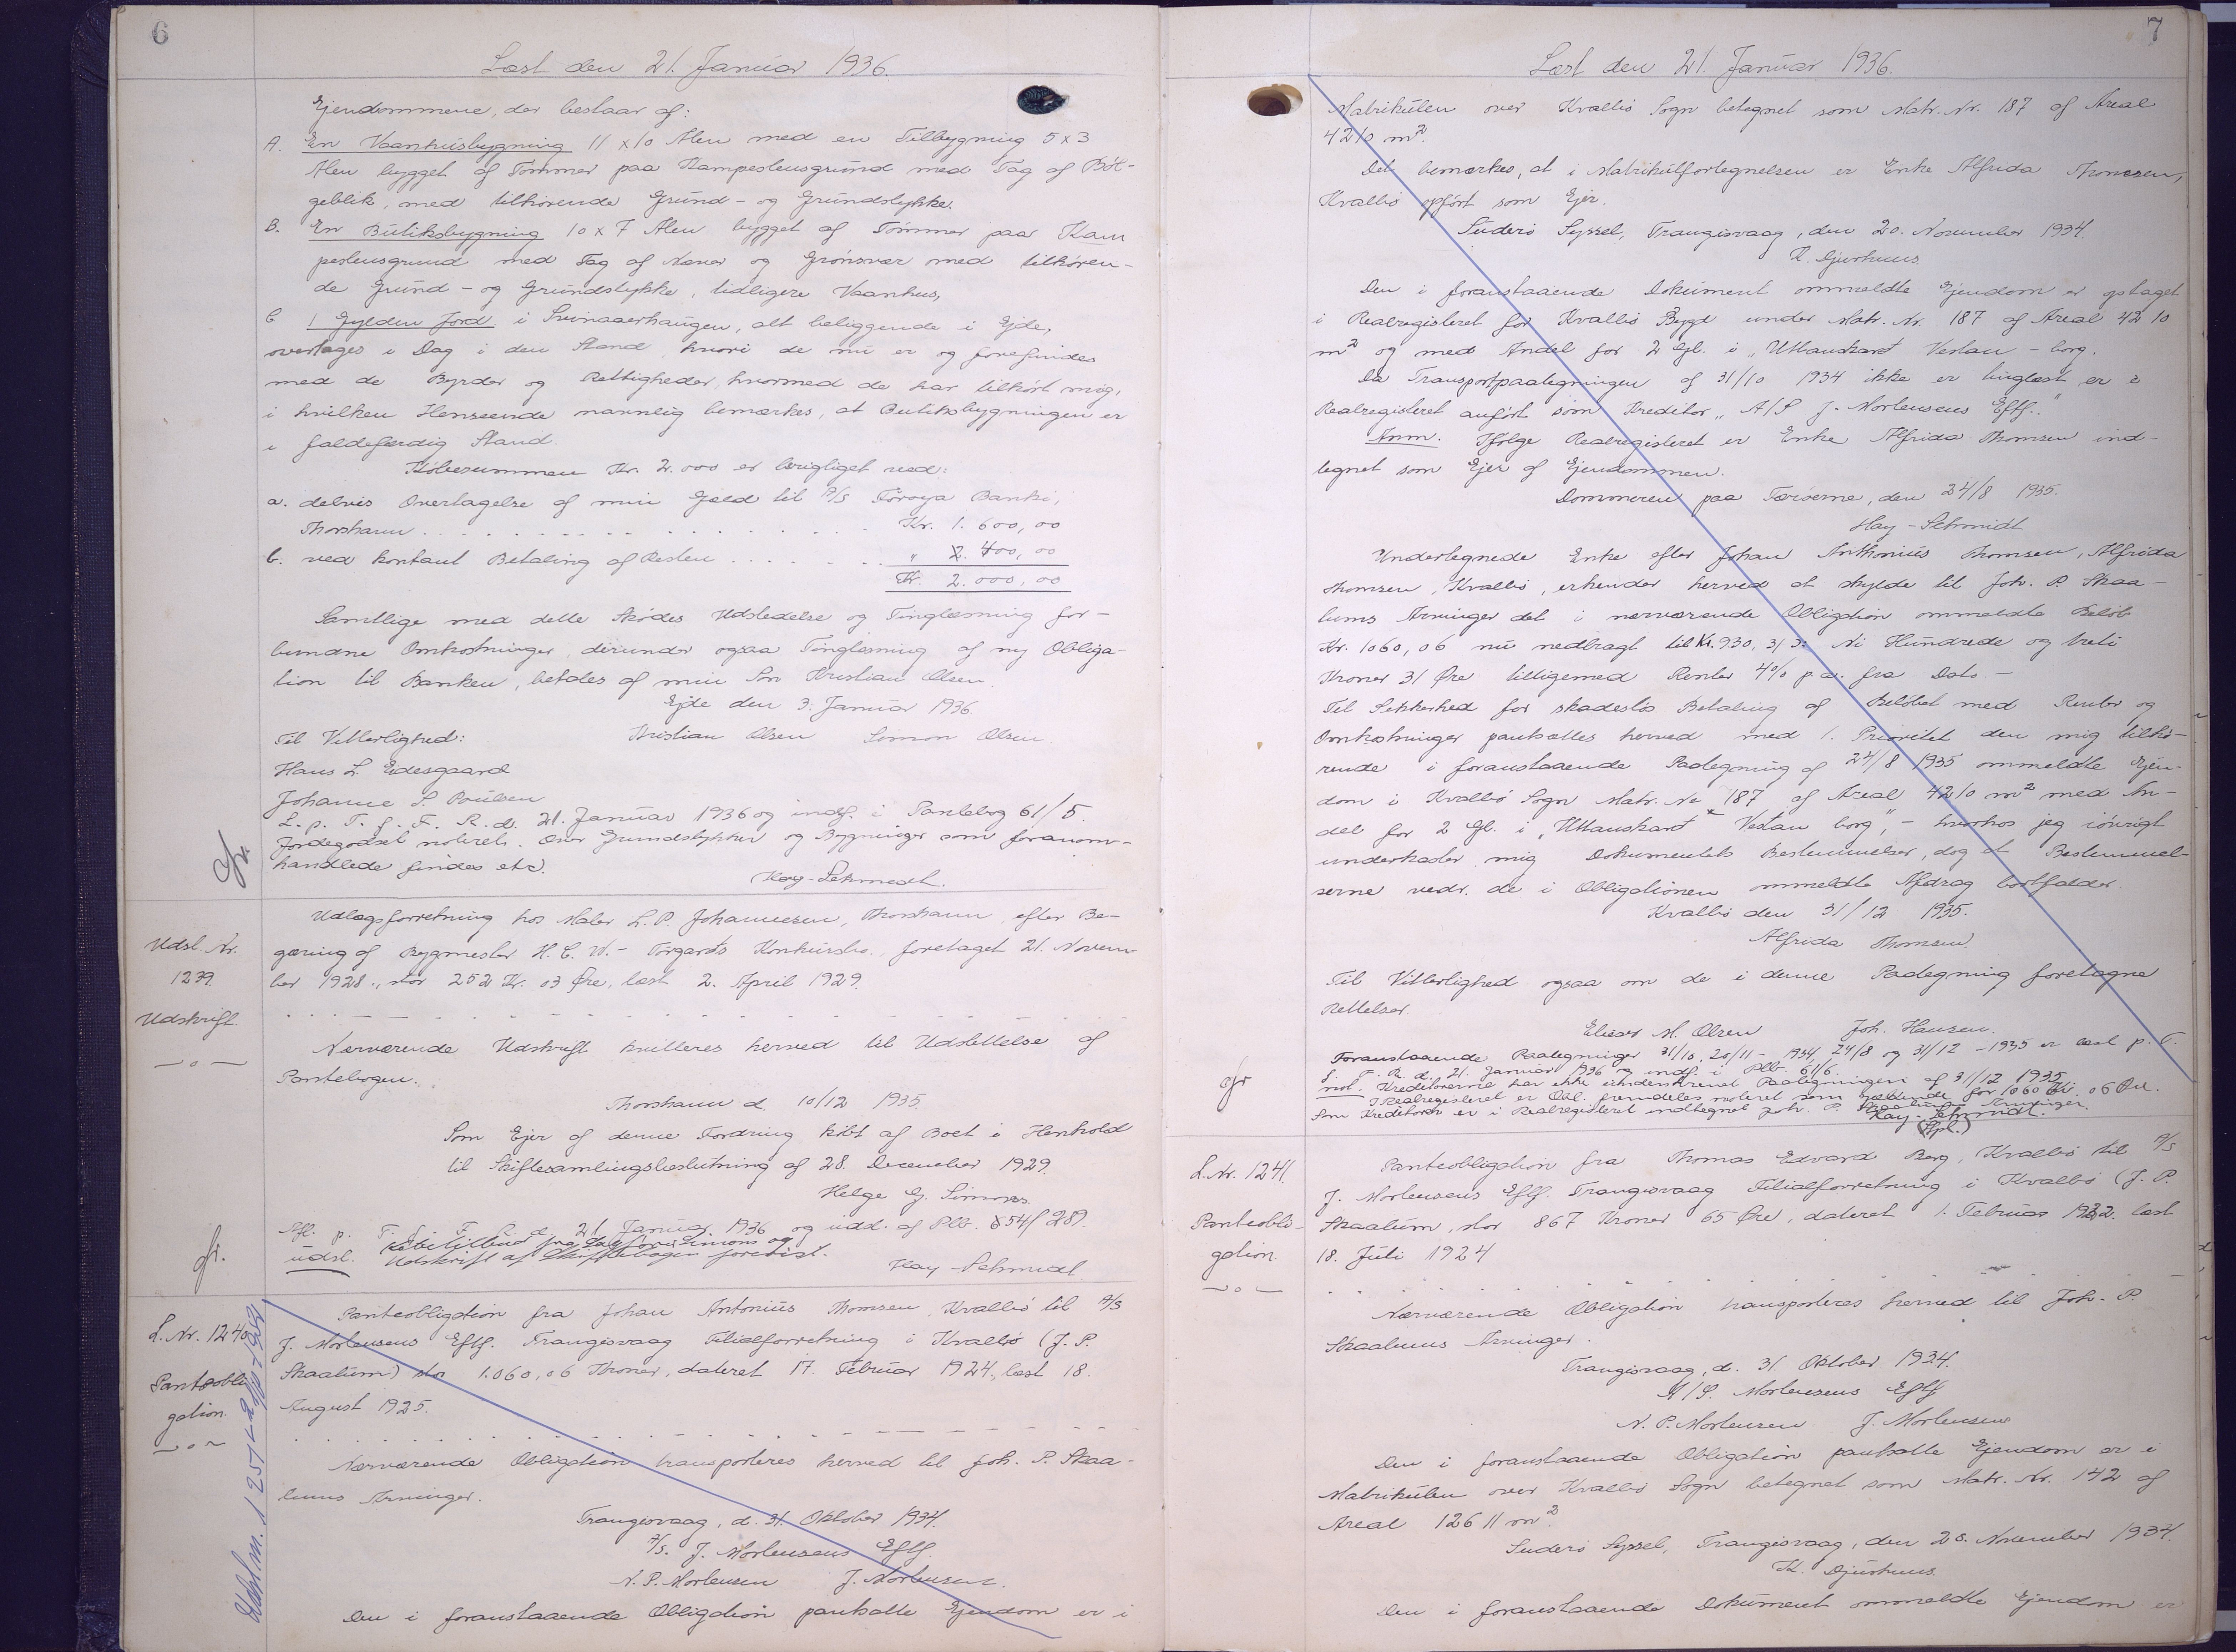 6
Læst den 21. Januar 1936.
Ejendommene, der bestaar af:
A. En Vaanhusbygning 11 x 10 Alen med en Tilbygning 5 x 3
Alen bygget af Tømmer paa Kampestensgrund med Tag af Böl-
geblik, med tilhørende Grund- og Grundstykke.
B. En Butiksbygning 10 x 7 Alen bygget af Tømmer paa Kam
pestensgrund med Tag af Næver og Grönsvær med tilhøren-
de Grund- og Grundstykke, tidligere Vaanhus,
C 1 Gylden Jord i Svinaaerhaugen, alt beliggende i Ejde,
overtages i Dag i den Stand, hvori de nu er og forefindes
med de Byrder og Rettigheder, hvormed de har tilhört mig,
i hvilken Henseende navnlig bemærkes, at Butiksbygningen er
i faldefærdig Stand.
Købesummen Kr. 2.000 er berigtiget ved:
a. delvis Overtagelse af min Gæld til A/S Föroya Banki,
Thorshavn . . . . . . . . . . Kr. 1.600,00
b. ved kontant Betaling af Resten . . . . . . " 400,00
Kr. 2.000,00
Samtlige med dette Skødes Udstedelse og Tinglæsning for-
bundne Omkostninger, derunder ogsaa Tinglæsning af ny Obliga-
tion til Banken, betales af min Søn Kristian Olsen.
Ejde den 3. Januar 1936.
Til Vitterlighed: Kristian Olsen Simon Olsen
Hans L. Eidesgaard
Johanne S. Poulsen
L. p. T. f. F. R. d. 21. Januar 1936 og indf. i Pantebog 61/5.
Jordegodset noteret. Over Grundstykker og Bygninger som foranom-
handlede findes etc.
Kay-Schmidt.
Udsl. Nr.
1239.
Udskrift
Udlægsforretning hos Maler L. P. Johannesen, Thorshavn, efter Be-
gæring af Bygmester H. C. W.- Torgards Konkursbo, foretaget 21. Novem-
ber 1928., stor 252 Kr. 03 Øre, læst 2. April 1929.
Nærværende Udskrift kvitteres herved til Udslettelse af
Pantebogen.
Thorshavn d. 10/12 1935.
Som Ejer af denne Fordring købt af Boet i Henhold
til Skiftesamlingsbeslutning af 28. December 1929.
Helge G. Simons.
Afl. p. T. f. F. R. d. 21. Januar 1936 og udd. af Plb. 54/289.
udsl. Købetilbud fra Sagfører Simons og
Udskrift af Skiftebogen forevist.
Kay-Schmidt
L. Nr. 1240
Panteobli
gation.
Panteobligation fra Johan Antonius Thomsen, Kvalbö til A/S
J. Mortensens Eftf. Trangisvaag Filialforretning i Kvalbö (J. P.
Skaalum) stor 1.060,06 Kroner, dateret 17. Februar 1924, læst 18.
August 1925.
Nærværende Obligation transporteres herved til Joh. P. Skaa-
lums Arvinger.
Trangisvaag, d. 31. Oktober 1934.
A/S. J. Mortensens Eftf.
N. P. Mortensen J. Mortensen.
Den i foranstaaende Obligation pantsatte Ejendom er i
7
Læst den 21. Januar 1936.
Matrikulen over Kvalbö Sogn betegnet som Matr. Nr. 187 af Areal
4210 m².
Det bemærkes, at i Matrikulfortegnelsen er Enke Alfrida Thomsen,
Kvalbö opfört som Ejer.
Suderö Syssel, Trangisvaag, den 20. November 1934.
K. Djurhuus.
Den i foranstaaende Dokument ommeldte Ejendom er optaget
i Realregisteret for Kvalbö Bygd under Matr. Nr. 187 af Areal 4210
m² og med Andel for 2 Gl. i "Uttanskard Vestan-borg.
Da Transportpaategningen af 31/10 1934 ikke er tinglæst, er i
Realregisteret anfört som Kreditor "A/S J. Mortensens Eftf."
Anm. Ifølge Realregisteret er Enke Alfrida Thomsen ind-
tegnet som Ejer af Ejendommen.
Dommeren paa Færöerne, den 24/8 1935.
Kay-Schmidt
Undertegnede Enke efter Johan Anthonius Thomsen, Alfrida
Thomsen, Kvalbö, erkender herved at skylde til Joh. P. Skaa-
lums Arvinger det i nærværende Obligation ommeldte Beløb
Kr. 1060,06 nu nedbragt til Kr. 930,31 3: Ni Hundrede og treti
Kroner 31 Øre tilligemed Renter 4% p.a. fra Dato.-
Til Sikkerhed for skadeslös Betaling af Beløbet med Renter og
Omkostninger pantsættes herved med 1. Prioritet den mig tilhö-
rende i foranstaaende Paategning af 24/8 1935 ommeldte Ejen-
dom i Kvalbö Sogn Matr. No 187 af Areal 4210 m² med An-
del for 2 Gl. i "Uttanskard Vestan borg", - hvorhos jeg iövrigt
underkaster mig Dokumentets Bestemmelser, dog at Bestemmel-
serne vedr. de i Obligationen ommeldte Afdrag bortfalder.
Kvalbö den 31/12 1935.
Alfrida Thomsen.
Til Vitterlighed ogsaa om de i denne Paategning foretagne
Rettelser.
Elieser M. Olsen Joh. Hansen.
Foranstaaende Paategninger 31/10, 20/11 - 1934, 24/8 og 31/12 - 1935 er læst p. T.
f. F. R. d. 21. Januar 1936 og indf. i Plb. 61/6.
not. Kreditorerne har ikke underskrevet Paategningen af 31/12 1935
I Realregisteret er Obl. fremdeles noteret som gældende for 1060 Kr. 06 Øre.
Som Kreditorer er i Realregisteret indtegnet Joh. P. Skaalums Arvinger.
Kay-Schmidt.
L. Nr. 1241.
Panteobli-
gation.
Panteobligation fra Thomas Edvard Berg, Kvalbö til A/S
J. Mortensens Eftf. Trangisvaag Filialforretning i Kvalbö (J. P.
Skaalum, stor 867 Kroner 65 Øre, dateret 1. Februar 1922. læst
18. Juli 1924
Nærværende Obligation transporteres herved til Joh. P.
Skaalums Arvinger.
Trangisvaag, d. 31. Oktober 1934.
A/S. Mortensens Eftf
N. P. Mortensen J. Mortensen
Den i foranstaaende Obligation pantsatte Ejendom er i
Matrikulen over Kvalbö Sogn betegnet som Matr. Nr. 142 af
Areal 12611 m².
Suderö Syssel, Trangisvaag, den 20. November 1934.
K. Djurhuus.
Den i foranstaaende Dokument ommeldte Ejendom er